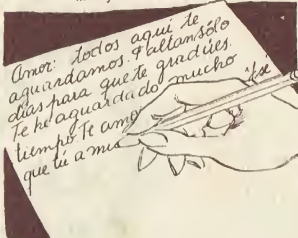 Amor: todos aquí te
aguardamos. Faltan sólo
días para que te gradúes.
Te he aguardado mucho
tiempo. Te amo
que tú a mí